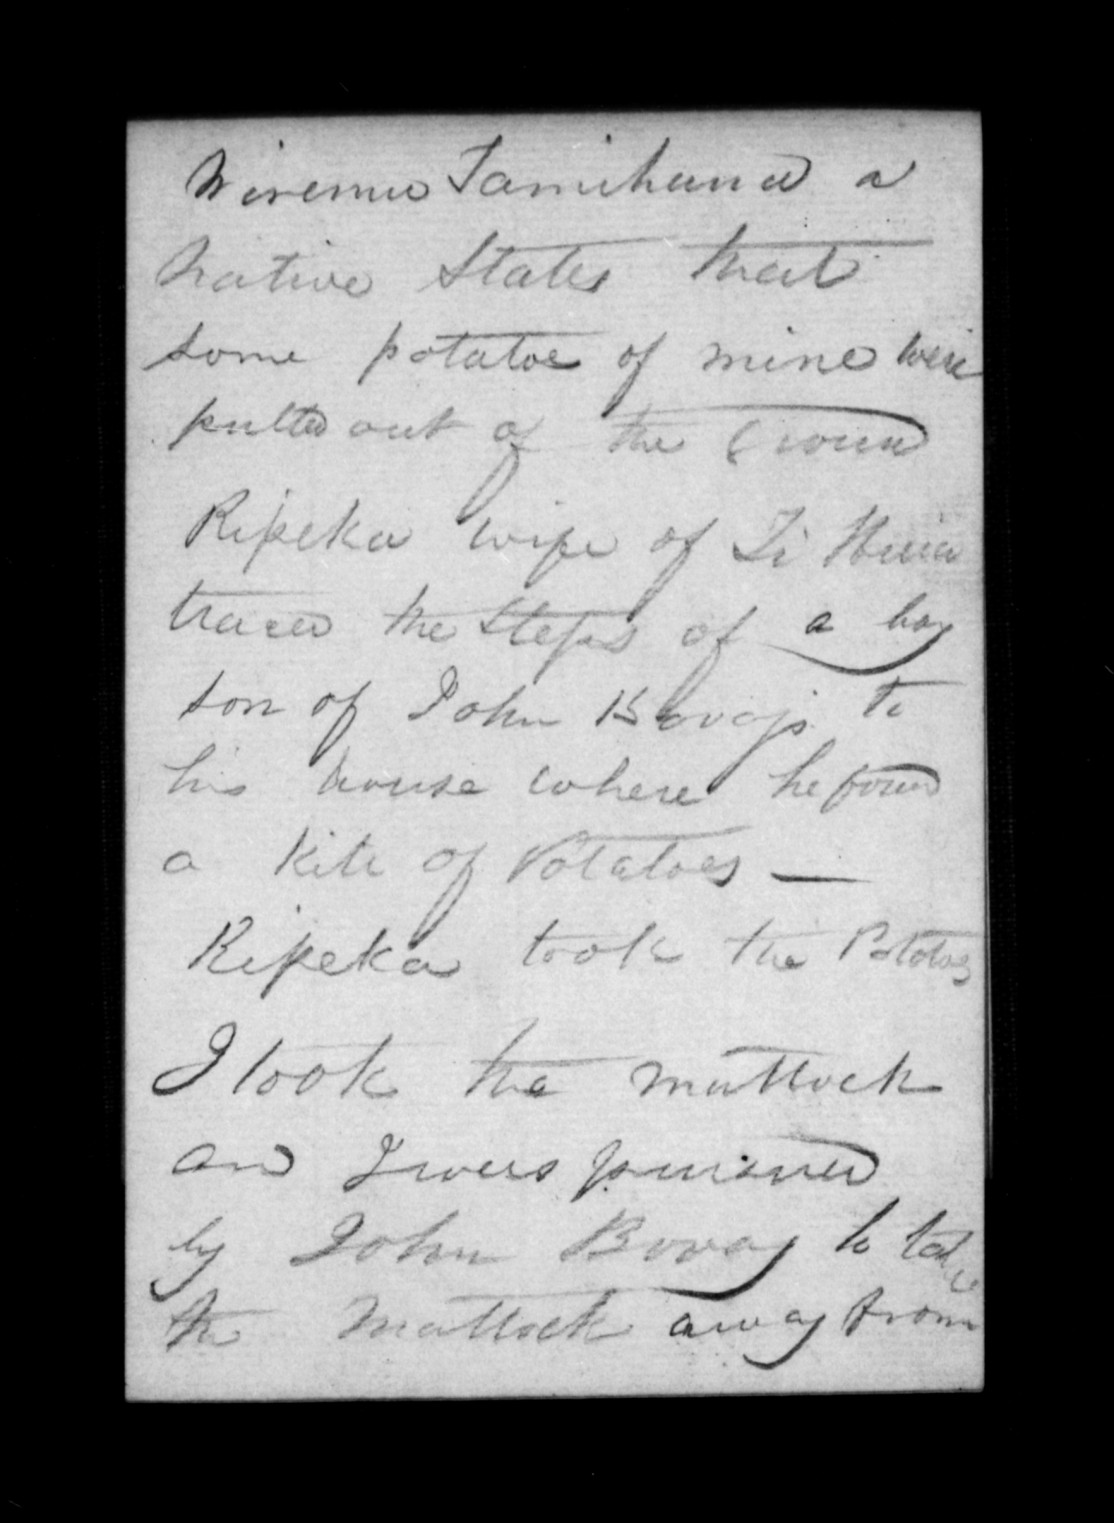 Wiremu Tamihana a
Native States that
some potatoe of mine were
pulled out of the Groun
Ripeka wife of Te Huia
traced the Steps of a boy
son of John Bovay to
his house where he found
a Kite of Potatoes —
Ripeka took the Potatoes
I took the mattock
and I was persued
by John Bovay to take
the Mattock away from